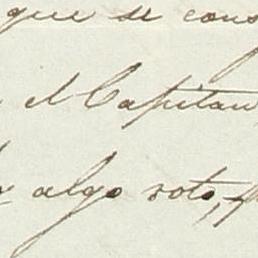 que se cons
el Capitan
algo roto,